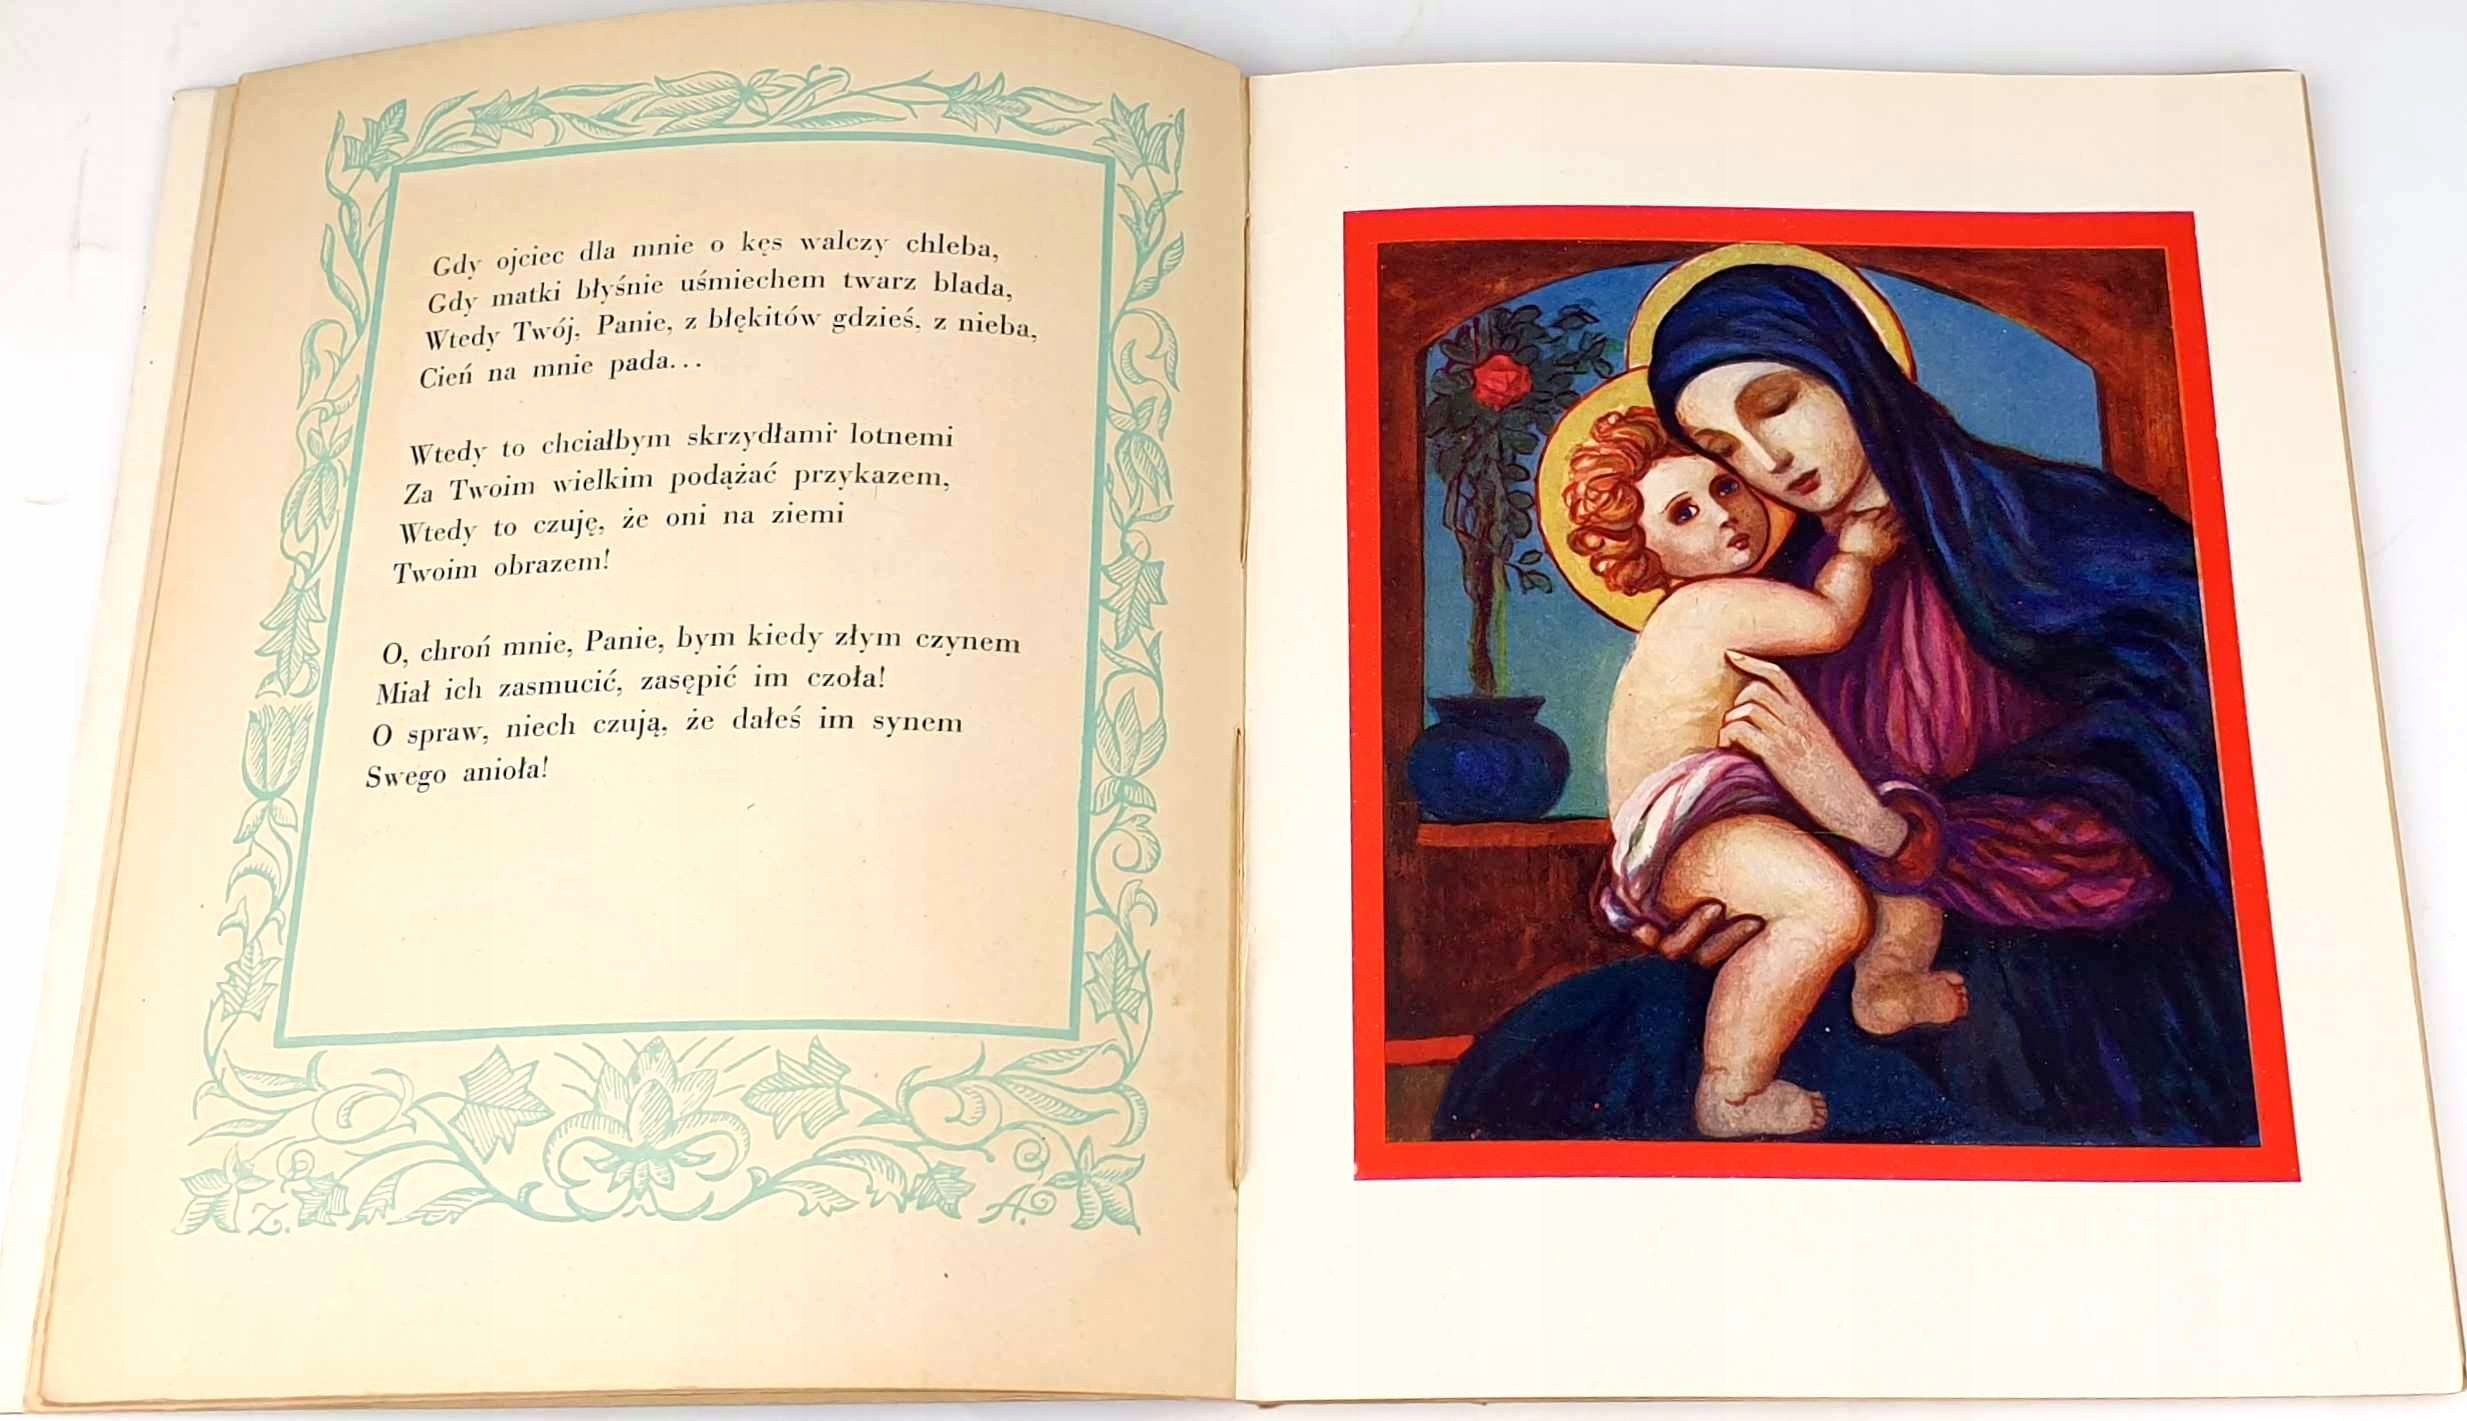 Gdy ojciec dla mnie o kęs walczy chleba,
Gdy matki błyśnie uśmiechem twarz blada,
Wtedy Twój, Panie, z błękitów gdzieś, z nieba,
Cień na mnie pada...
Wtedy to chciałbym skrzydłami lotnemi
Za Twoim wielkim podążać przykazem,
Wtedy to czuję, że oni na ziemi
Twoim obrazem!
O, chroń mnie, Panie, bym kiedy złym czynem
Miał ich zasmucić, zasępić im czoła!
O spraw, niech czują, że dałeś im synem
Swego anioła!
Z. A.